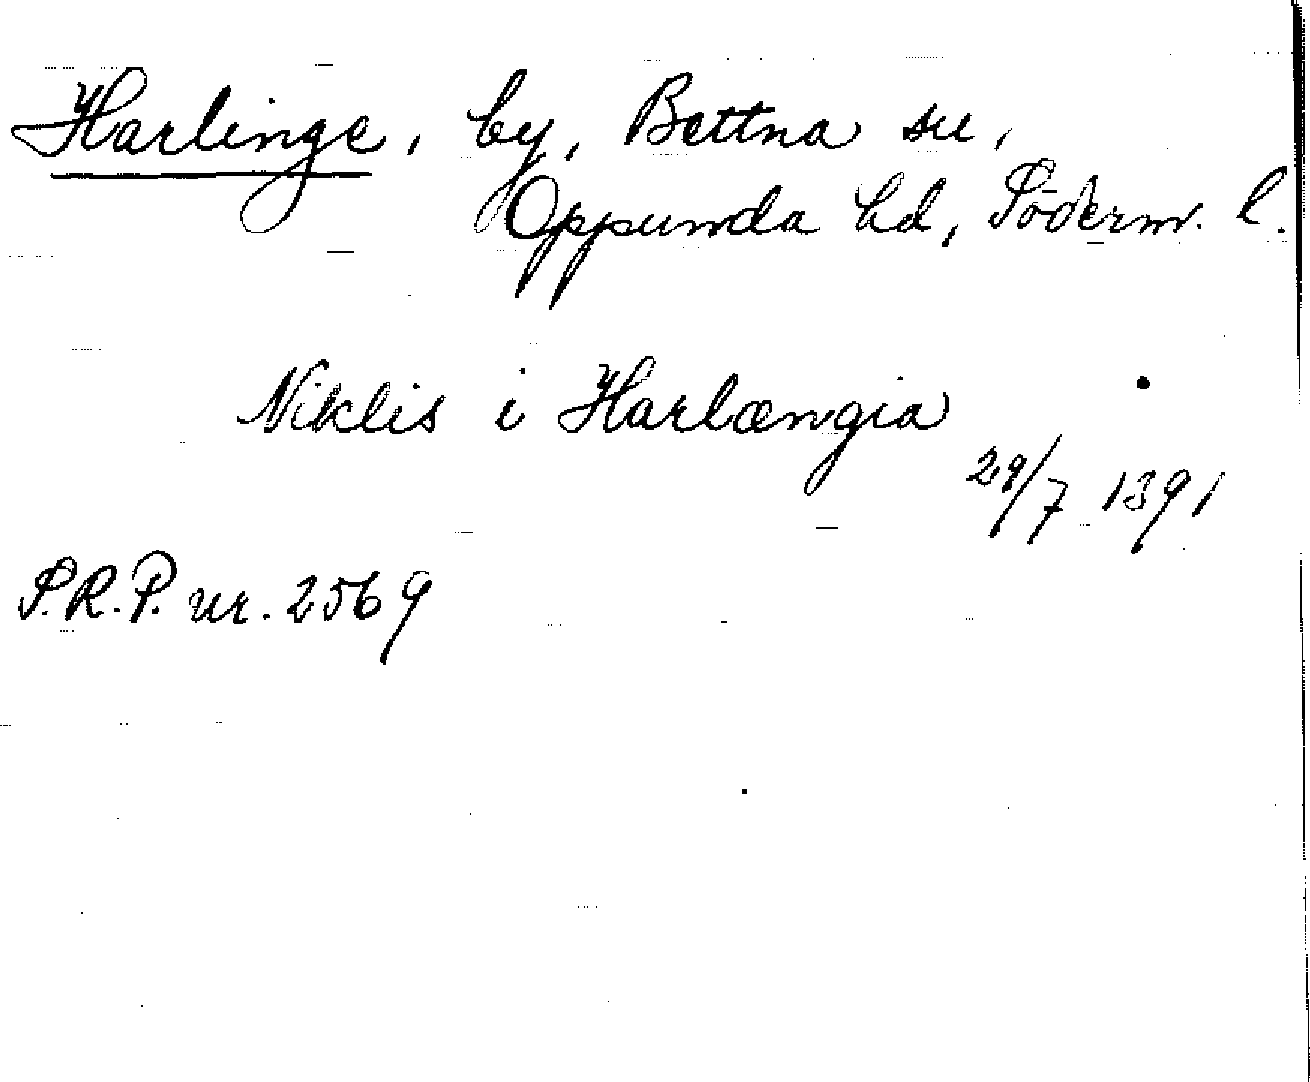 Harlinge, by, Bettna sn,
Oppunda hd, Söderm. l.
Niklis i Harlængia
29/7 1391
S.R.P. nr. 2569